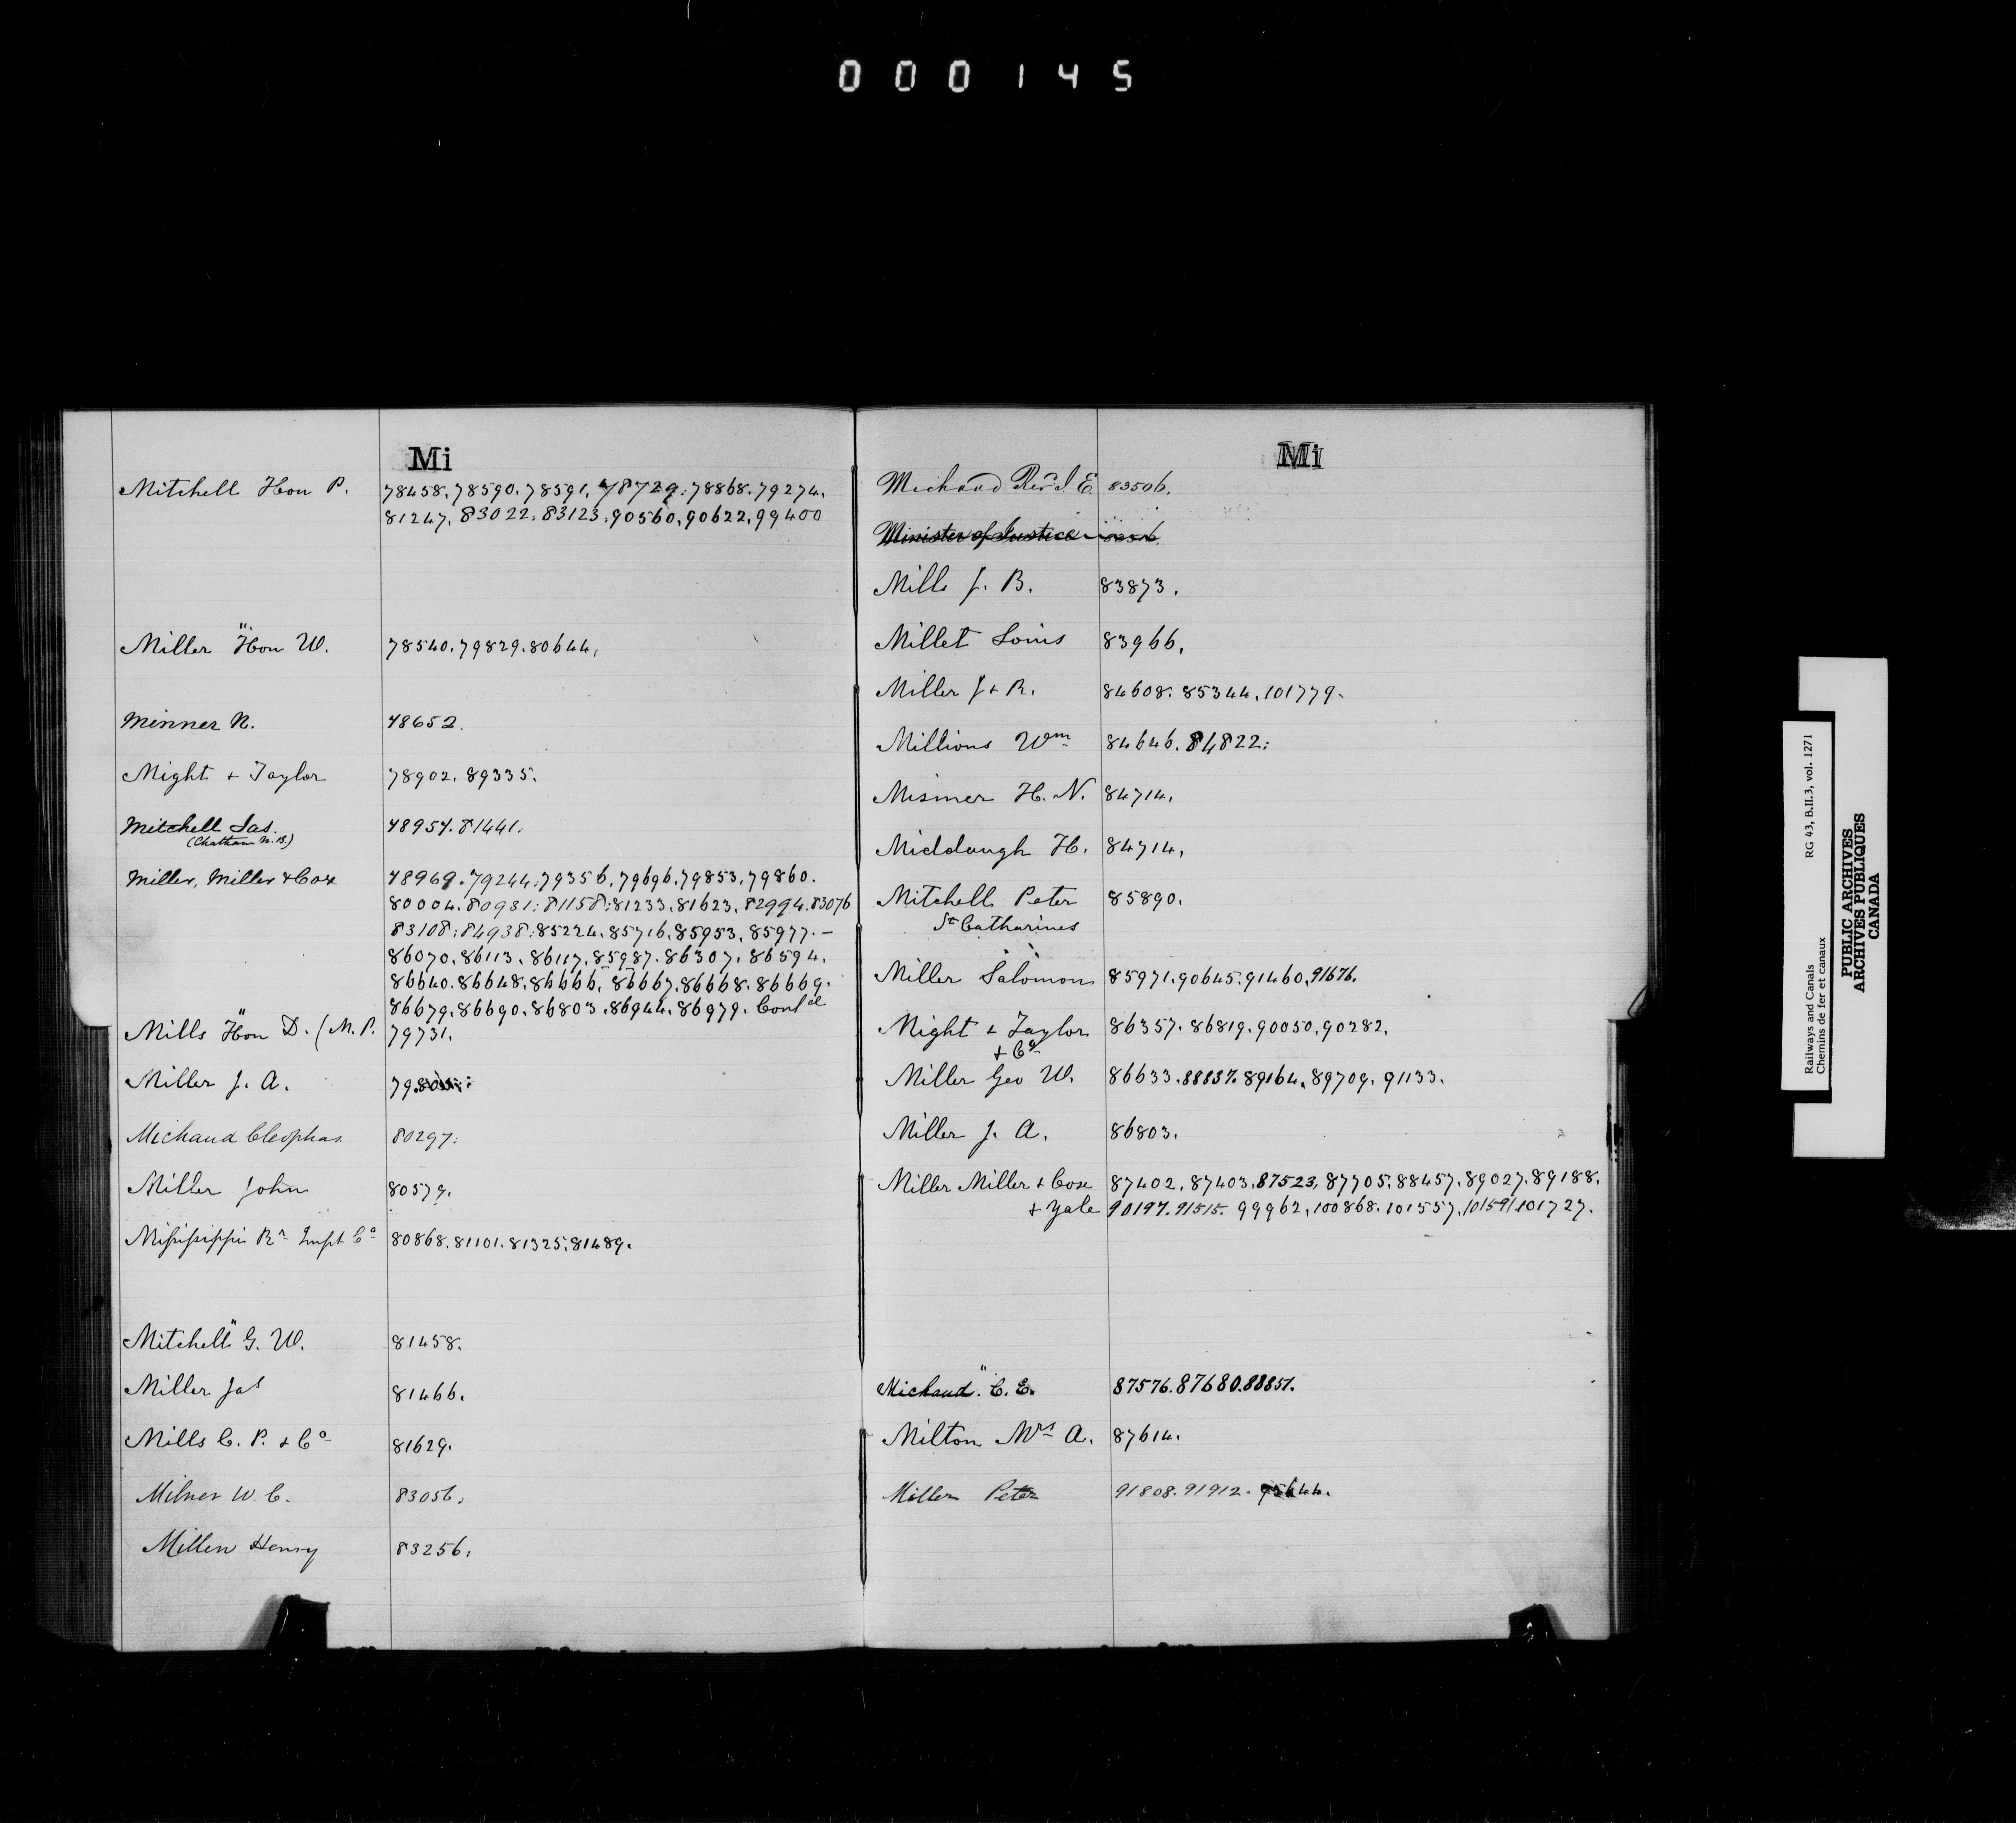 000145
Mi
Mitchell Hon P. 78458.78590.78591.78729:78868.79274.
81247.83022.83123.90560.90622.99400
Miller "Hon W. 78540.79829.80644.
Minner N. 78652.
Might & Taylor 78902.89335.
Mitchell Jas. 78957.81441.
(Chatham N.B.)
Miller, Miller & Cox 78969.79244:79356.79696.79853.79860.
80004.80931:81158:81233.81623.82994.83076
83108:84938:85224.85716.85953.85977.—
86070.86113.86117.85987.86307.86594.
86640.86648.86666.86667.86668.86669.
86679.86690.86803.86944.86979. Cont'd
Mills Hon D. (M.P. 79731.
Miller J. A.
Michaud Cleophas 80297:
Miller John 80579.
Mississippi Rr Impt Co 80868.81101.81325.81489.
Mitchell" G. W. 81458.
Miller Jas 81466.
Mills C. P. & Co 81629.
Milner W. C. 83056.
Millen Henry 83256.
Mi
Michaud Rev'd E. 83506.
Minister of Justice
Mills J. B. 83873.
Millet Louis 83966.
Miller J & R. 84608.85344.101779.
Millions Wm 84646.84822:
Mismer H. N. 84714.
Middaugh H. 84714.
Mitchell Peter 85890.
St Catharines
Miller Salomon 85971.90645.91460.91676.
Might & Taylor 86357.86819.90050.90282.
& Co
Miller Geo W. 86633.88837.89164.89709.91133.
Miller J. A. 86803.
Miller Miller & Cox 87402.87403.87523.87705.88457.89027.89188.
& Yale 90197.91515.99962.100868.101557.101591.101727.
Michaud" C. E. 87576.87680.88851.
Milton Mrs A. 87614.
Miller Peter 91808.91912.95644.
Railways and Canals RG 43, B.II.3, vol. 1271
Chemins de fer et canaux
PUBLIC ARCHIVES
ARCHIVES PUBLIQUES
CANADA